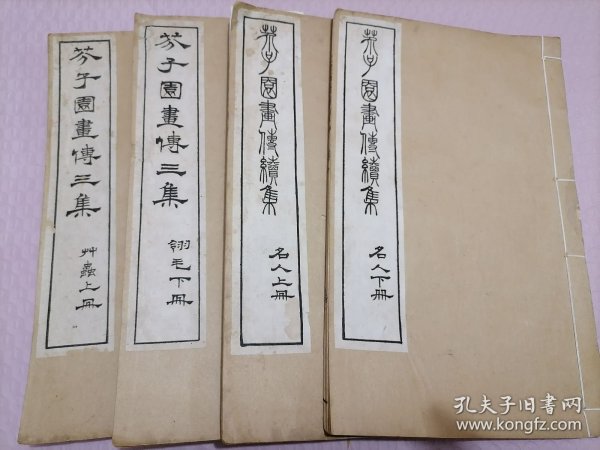 芥子園畫傳三集
艸蟲上冊
芥子園畫傳三集
翎毛下冊
芥子園畫傳續集
名人上冊
芥子園畫傳續集
名人下冊
孔夫子旧书网
www.kongfz.com